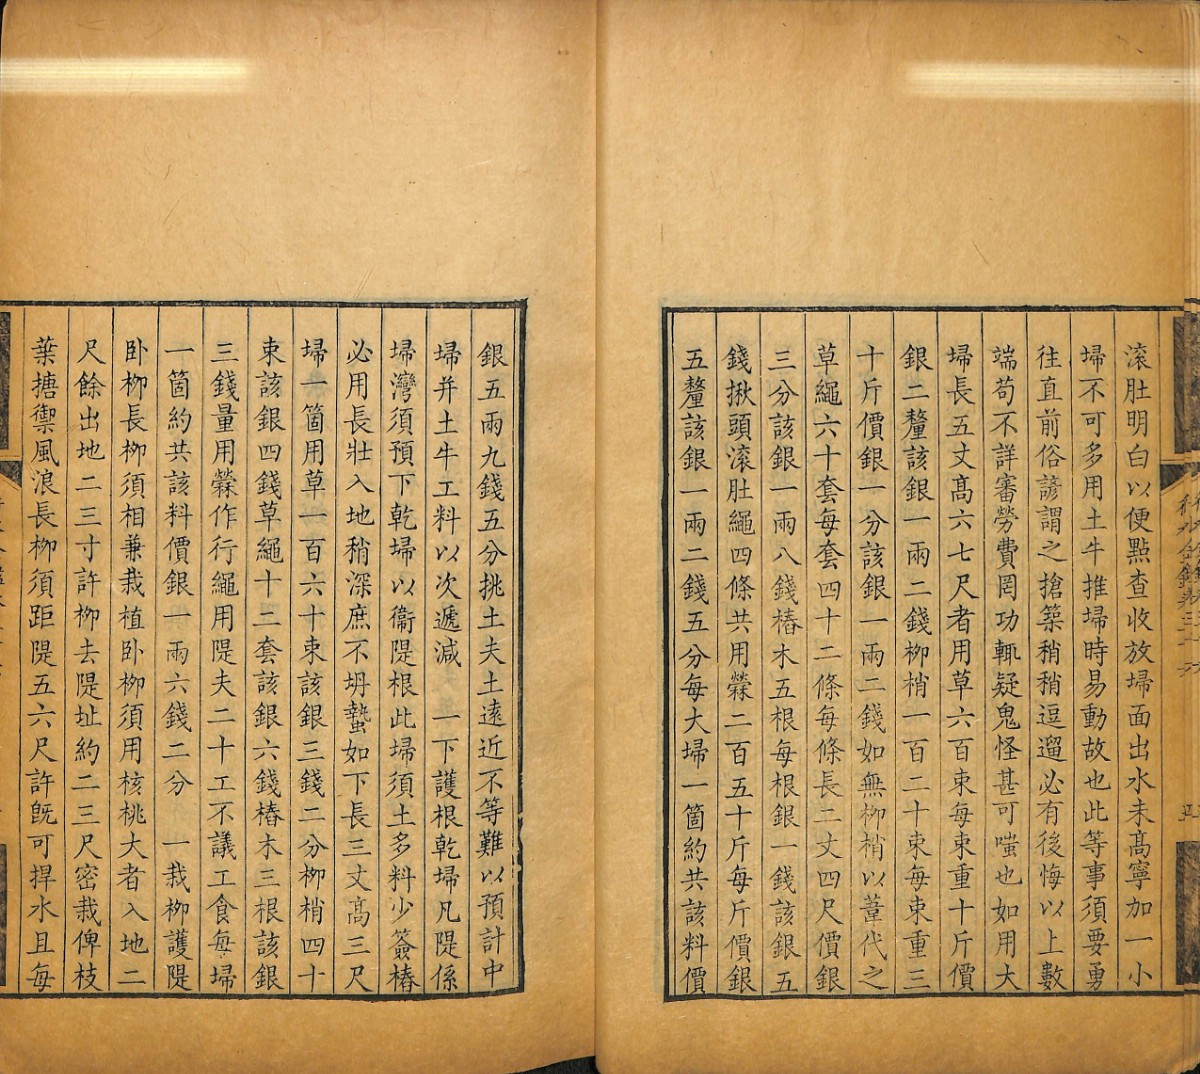 滚肚明白以便點查收放埽面出水未髙寧加一小
埽不可多用土牛推埽時易動故也此等事須要勇
往直前俗諺謂之搶築稍稍逗遛必有後悔以上數
端苟不詳審勞費罔功輒疑鬼怪甚可嗤也如用大
埽長五丈髙六七尺者用草六百束每束重十斤價
銀二釐該銀一兩二錢柳梢一百二十束每束重三
十斤價銀一分該銀一兩二錢如無柳梢以葦代之
草繩六十套每套四十二條每條長二丈四尺價銀
三分該銀一兩八錢樁木五根每根銀一錢該銀五
錢揪頭滚肚繩四條共用檾二百五十斤每斤價銀
五釐該銀一兩二錢五分每大埽一箇約共該料價
銀五兩九錢五分挑土夫土遠近不等難以預計中
埽并土牛工料以次遞減　一下護根乾埽凡隄係
埽灣須預下乾埽以衞隄根此埽須土多料少簽樁
必用長壯入地稍深庶不坍蟄如下長三丈髙三尺
埽一箇用草一百六十束該銀三錢二分柳梢四十
束該銀四錢草繩十二套該銀六錢樁木三根該銀
三錢量用檾作行繩用隄夫二十工不議工食每埽
一箇約共該料價銀一兩六錢二分　一栽柳護隄
卧柳長柳須相兼栽植卧柳須用核桃大者入地二
尺餘出地二三寸許柳去隄址約二三尺密栽俾枝
葉搪禦風浪長柳須距隄五六尺許旣可捍水且每